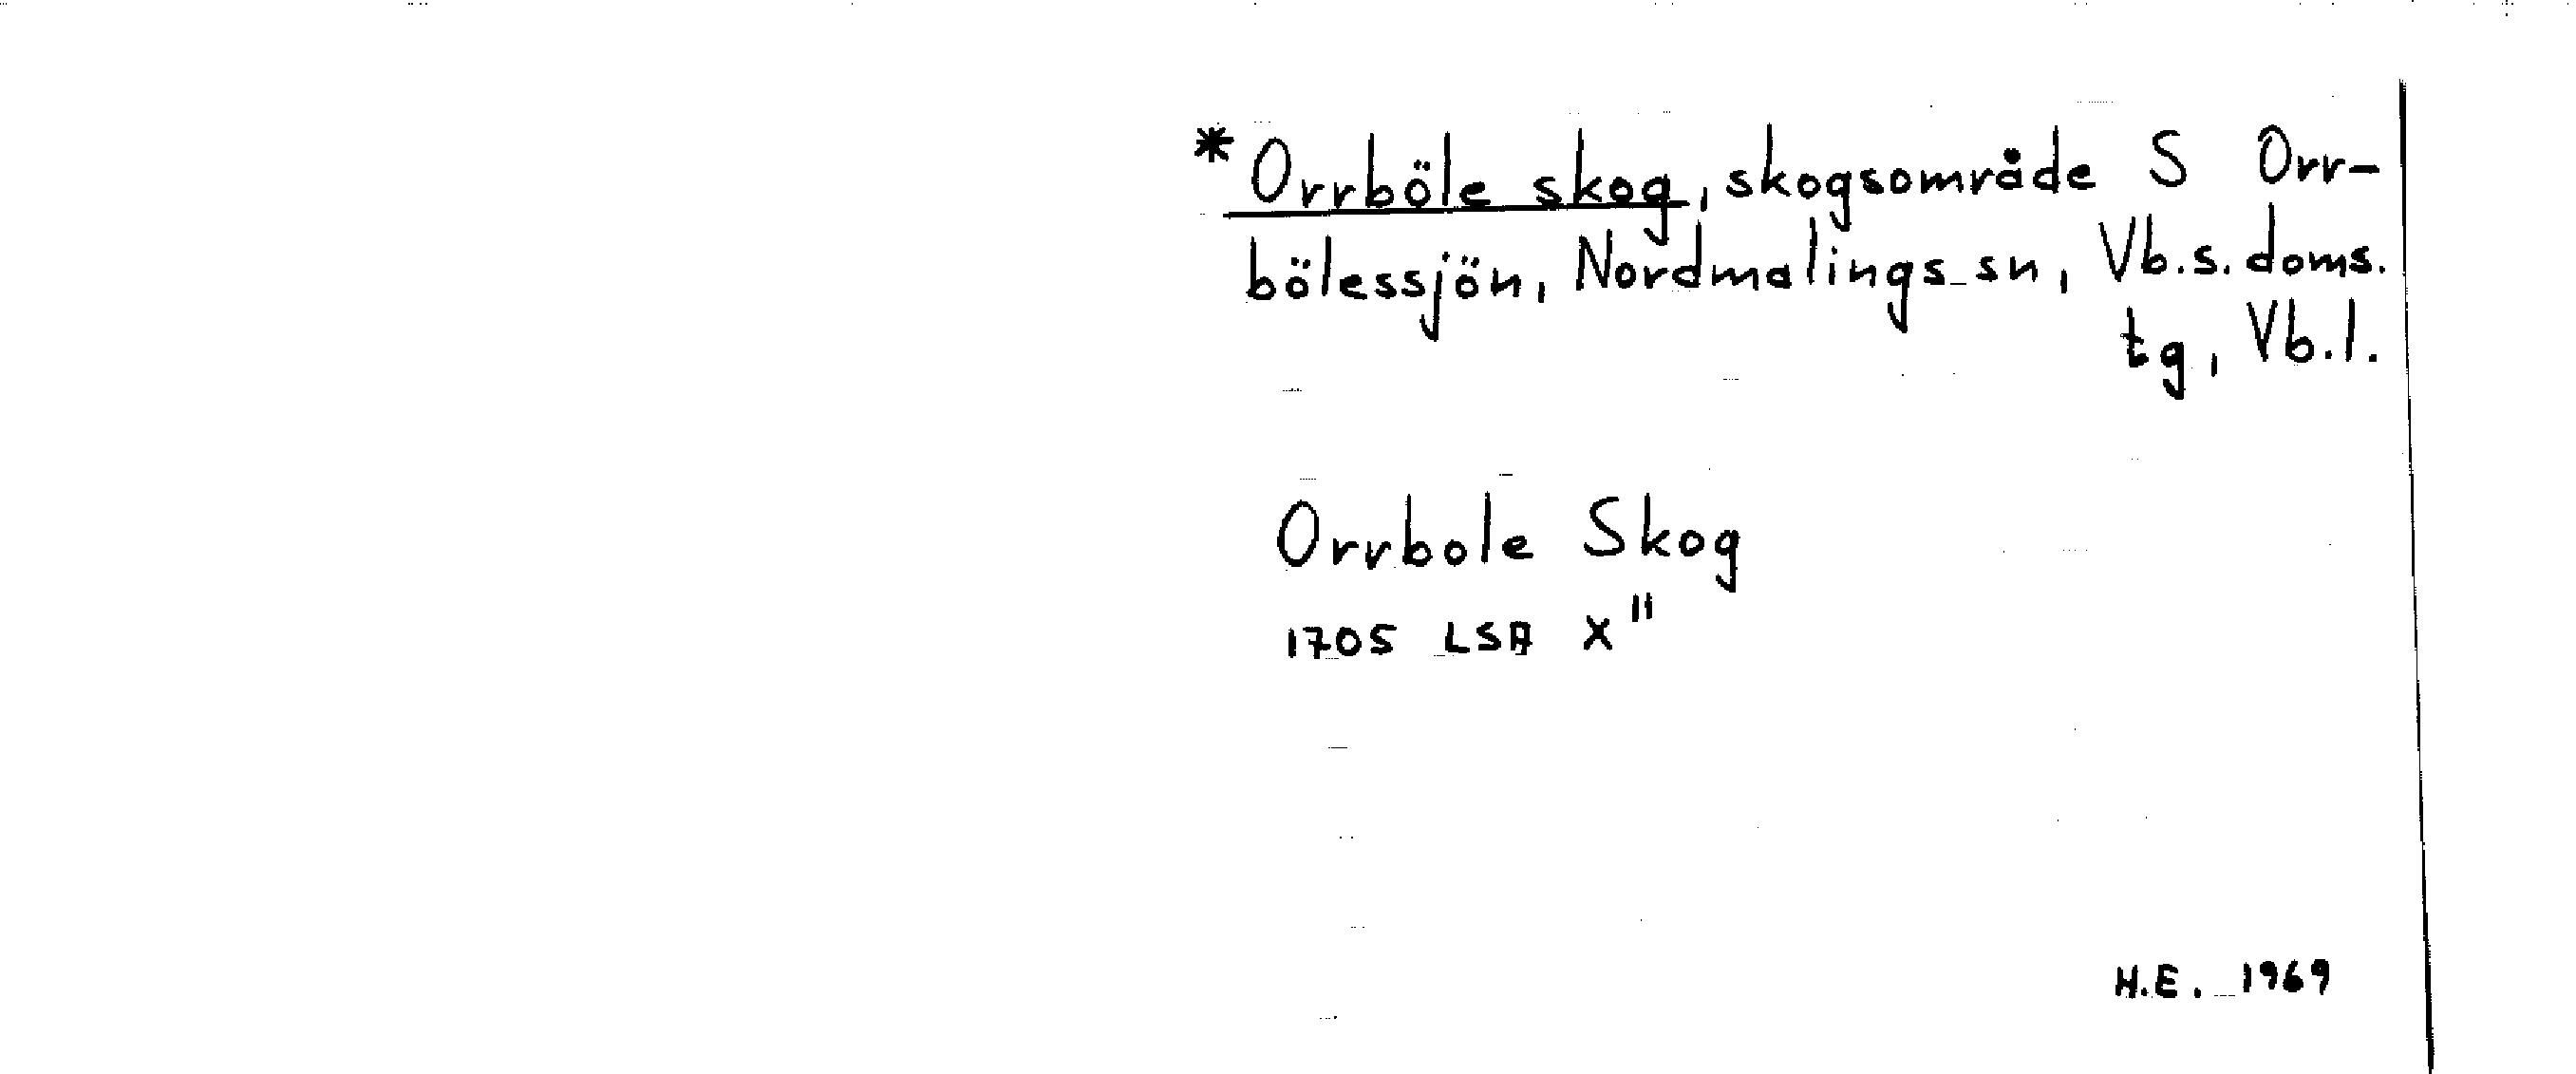 * Orrböle skog, skogsområde S Orr-
bölessjön, Nordmalings sn, Vb.s.doms.
tg, Vb.l.
Orrbole Skog
1705 LSA X"
H.E. 1969